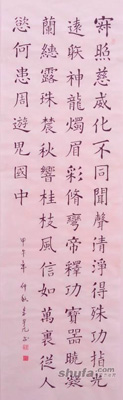 照慈威化不同聞聲清淨得殊功光
遠神龍燭眉彩脩彎帝釋功寶器曉
蘭總露珠秋響桂枝風信如萬從人
慾何患周遊鬼國中
甲午年仲秋
shufa.com